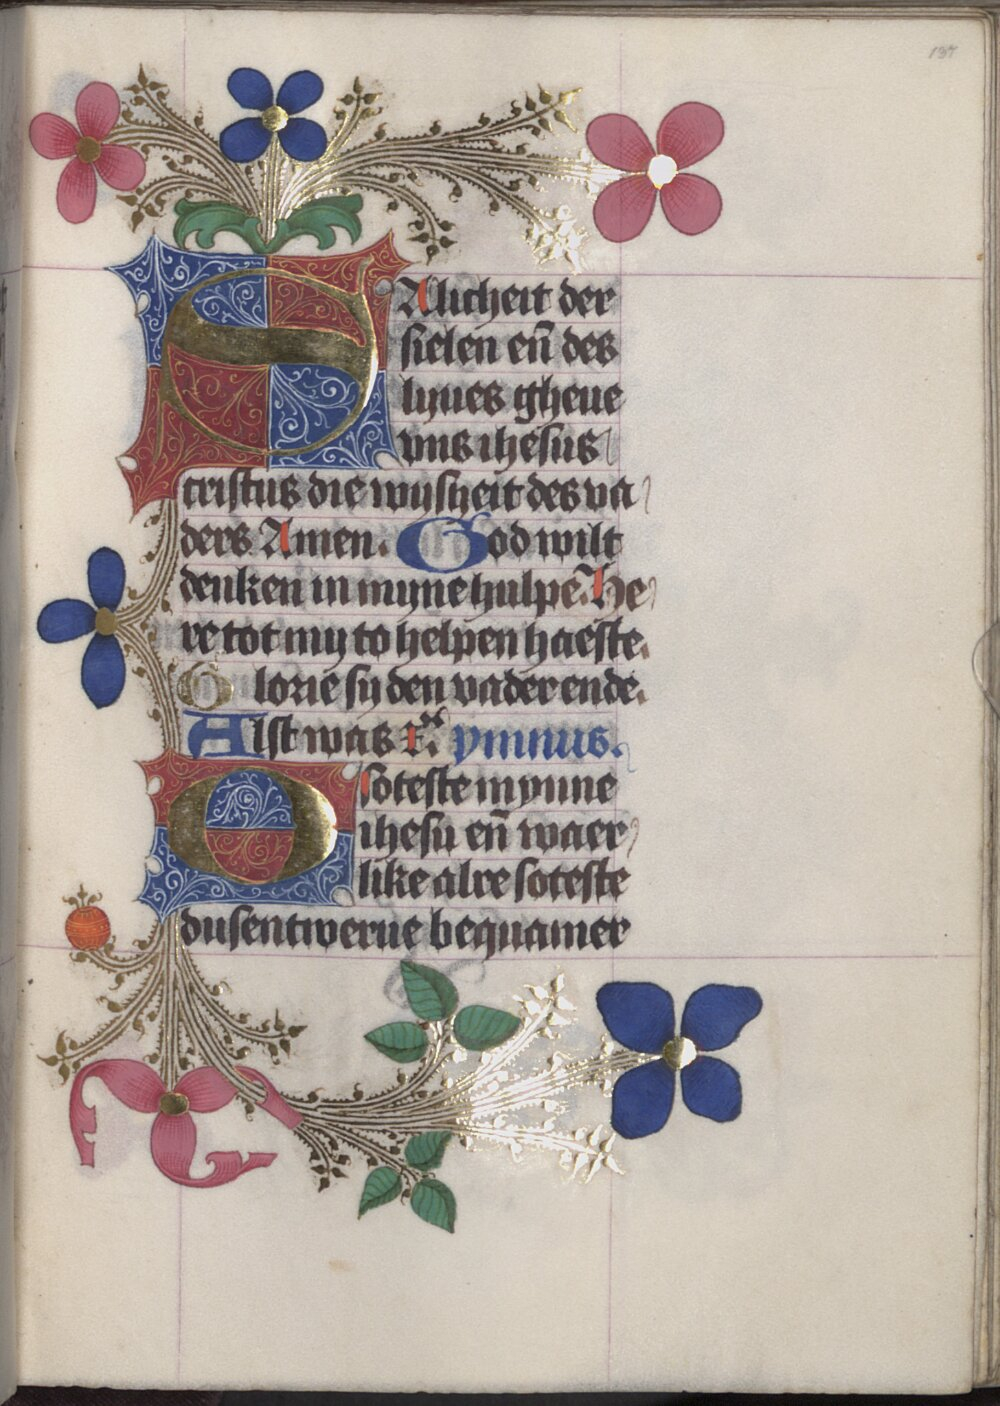 137
SAlicheit der
sielen en̄ des
lyues gheue
vns ihesus
cristus die wijsheit des va
ders Amen. God wilt
denken in myne hulpe. He
re tot my to helpen haeste.
Glorie sy den vader ende.
Alst was ymnus.
O soteste mynne
ihesu en̄ waer
like alre soteste
dusentwerue bequamer